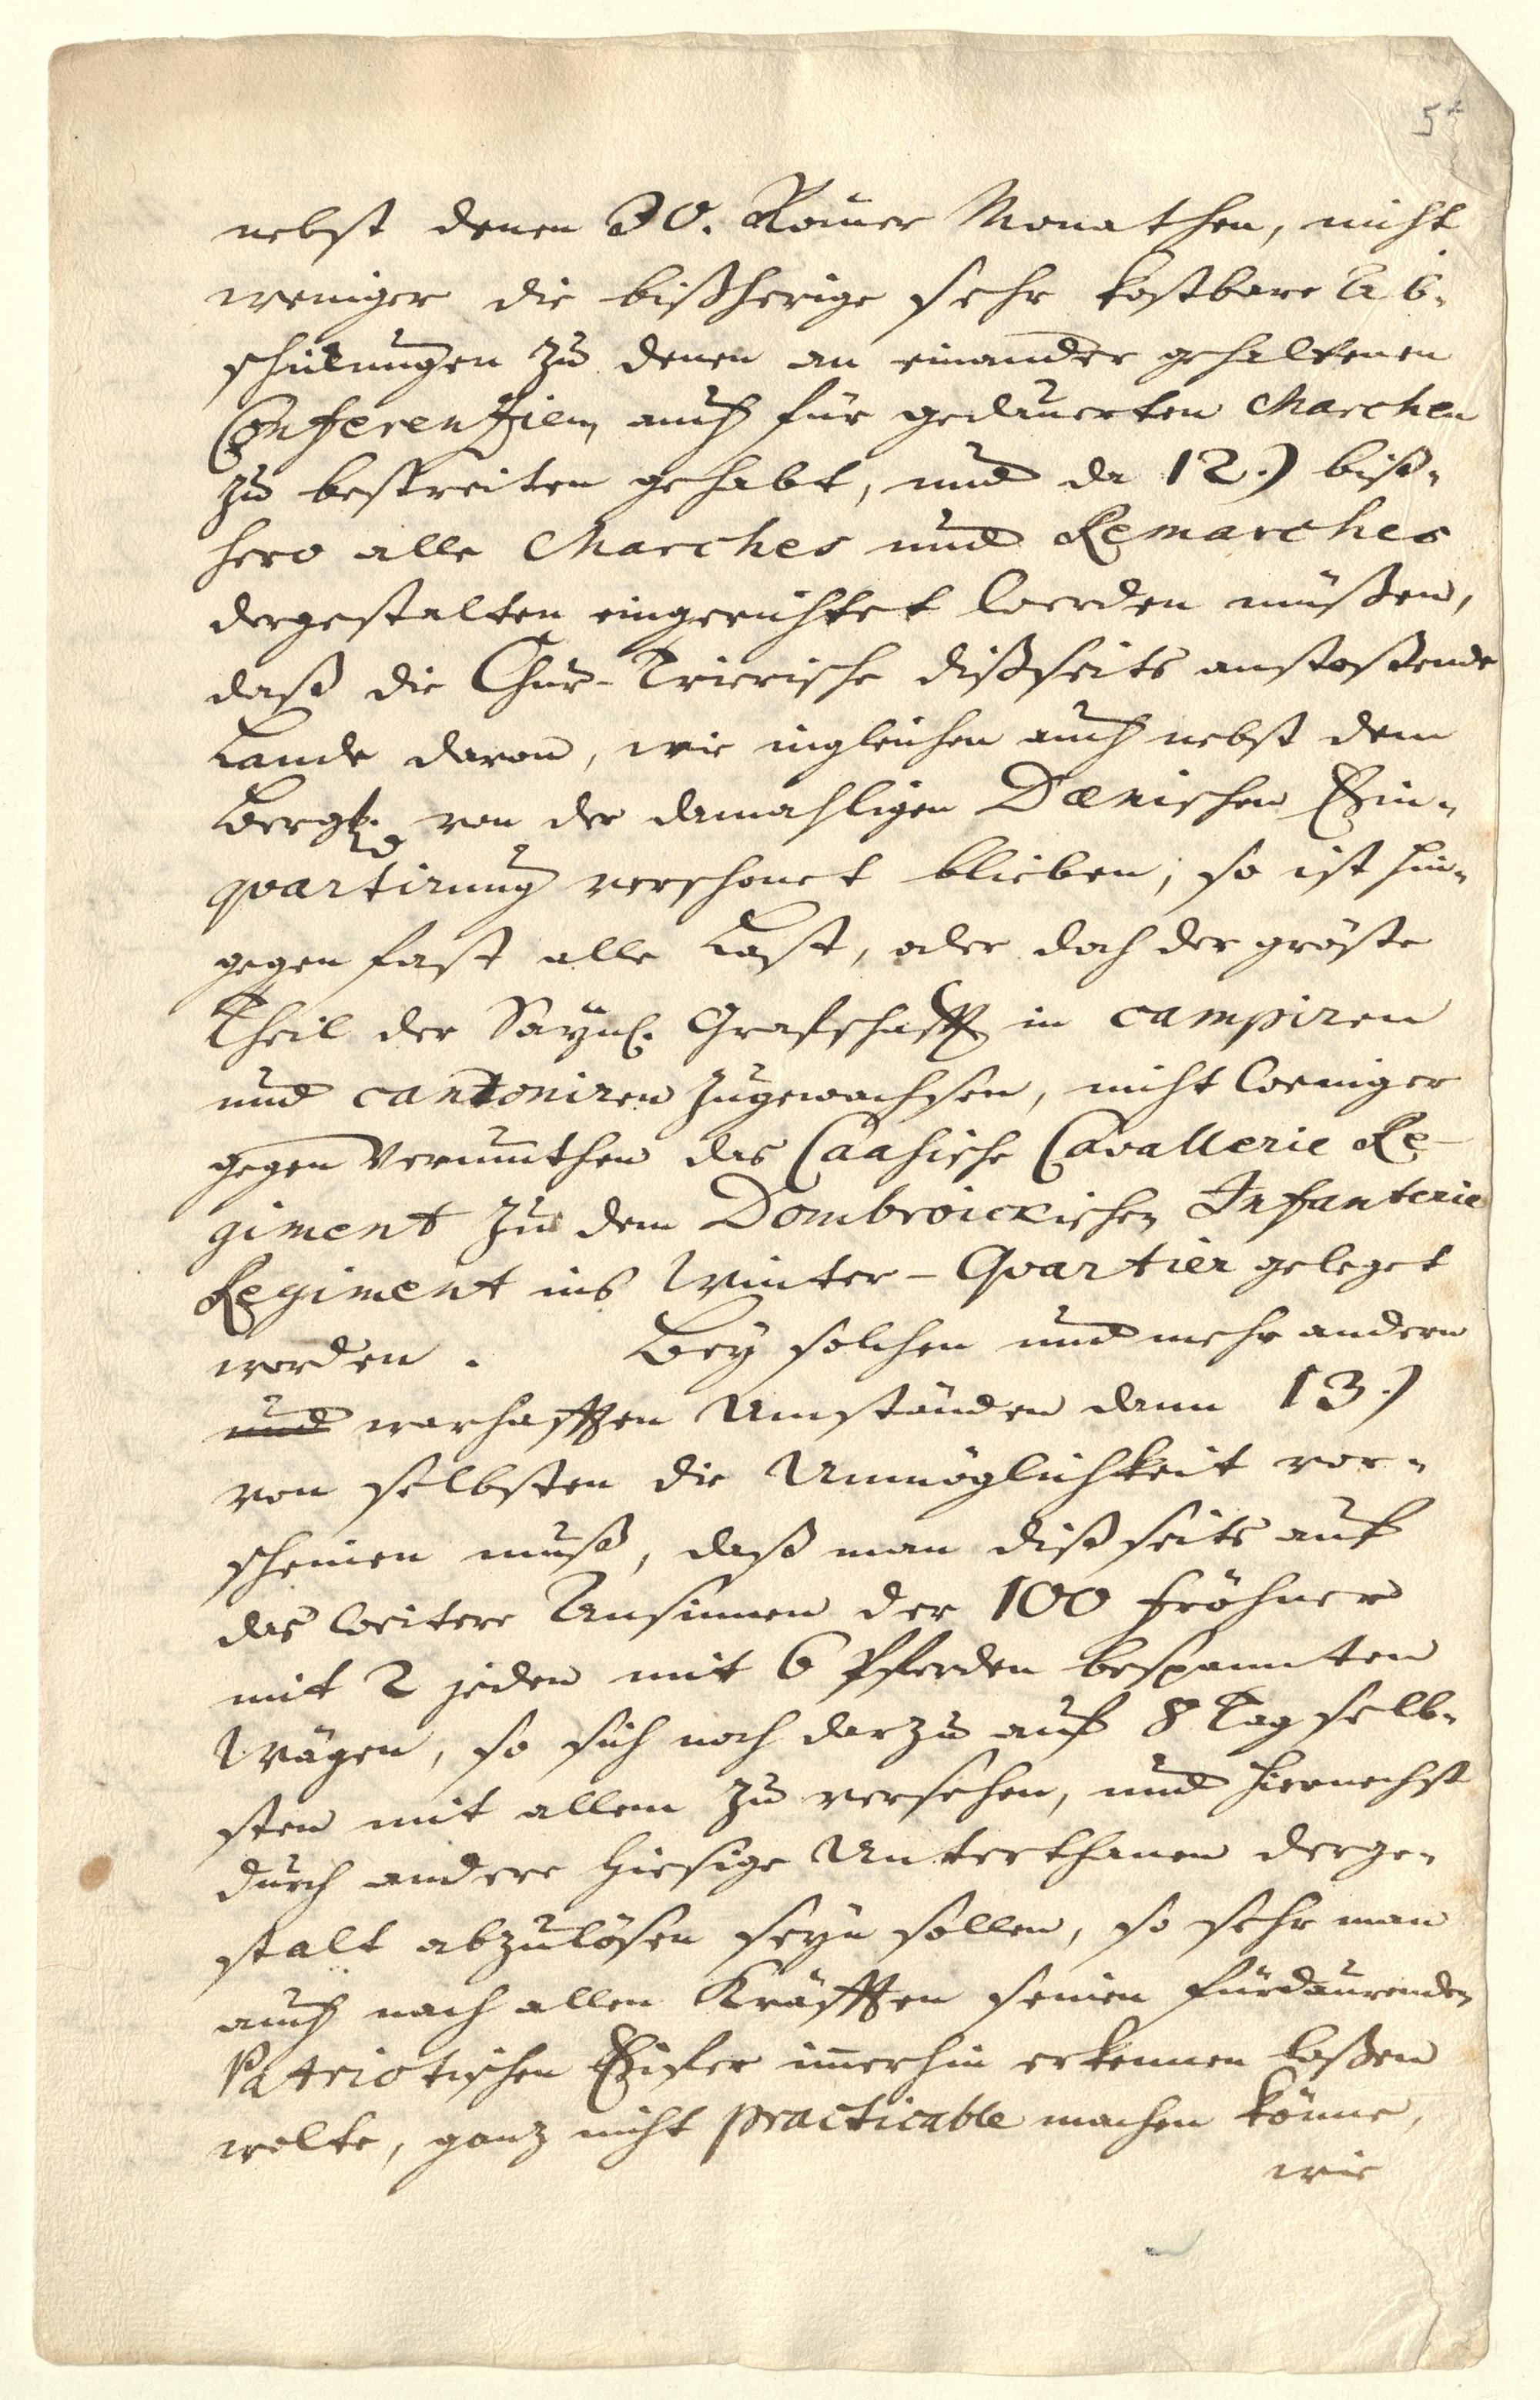 5
nebst denen 30. Römer Monathen, nicht
weniger die bißherige sehr kostbare Ab-
schickungen zu denen an einander gehaltenen
Conferenzien, auch für gedauerten Marchen
zu bestreiten gehabt, und da 12.) biß-
hero alle Marches und Remarches
dergestalten eingerichtet werden müßen,
daß die Chur-Trierische dißseits anstoßende
Lande davon, wie ingleichen auch nebst dem
von der damahligen Dænischen Ein-
quartirung verschonet blieben, so ist hin-
gegen fast alle Last, oder doch der gröste
Theil der Saynl. Grafschafft in campiren
und cantoniren zugewachsen, nicht weniger
gegen Vermuthen das Caasische Cavallerie Re-
giment zu dem Dombroickischen Infanterie
Regiment ins Winter-Quartier geleget
worden. Bey solchen und mehr andern
und warhafften Umständen dann 13.)
von selbsten die Unmöglichkeit vor-
scheinen muß, daß man dißseits auf
das weitere Ansinnen der 100 Fröhner
mit 2 jeden mit 6 Pferden bespannten
Wägen, so sich noch darzu auf 8 Tag selb-
sten mit allem zu versehen, und hiernechst
durch andere hiesige Unterthanen derge-
stalt abzulösen seyn sollen, so sehr man
auch nach allen Kräfften seinen fürdaurenden
Patriotischen Eifer immerhin erkennen laßen
wolte, ganz nicht practicable machen könne,
wie